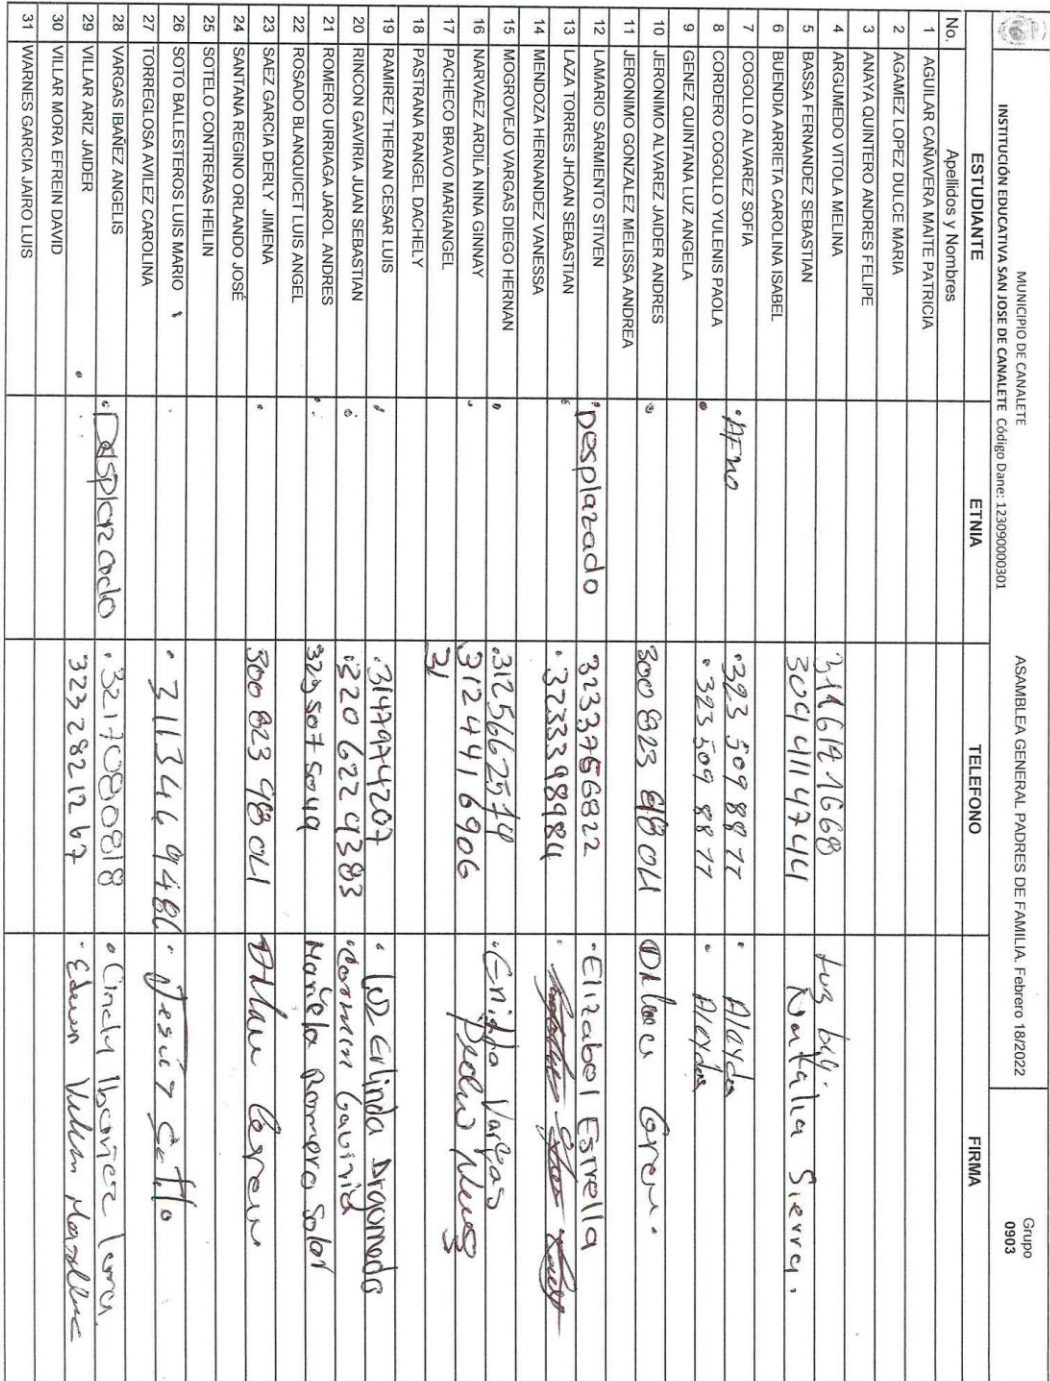 MUNICIPIO DE CANALETE
INSTITUCIÓN EDUCATIVA SAN JOSE DE CANALETE Código Dane: 123090000301
ASAMBLEA GENERAL PADRES DE FAMILIA. Febrero 18/2022
Grupo
0903
ESTUDIANTE ETNIA TELEFONO FIRMA
No. Apellidos y Nombres
1 AGUILAR CAÑAVERA MAITE PATRICIA
2 AGAMEZ LOPEZ DULCE MARIA
3 ANAYA QUINTERO ANDRES FELIPE
4 ARGUMEDO VITOLA MELINA 3116191668 Luz
5 BASSA FERNANDEZ SEBASTIAN 3094114744 Natalia Sierra.
6 BUENDIA ARRIETA CAROLINA ISABEL
7 COGOLLO ALVAREZ SOFIA AFRO 323 509 8877 Alayda
8 CORDERO COGOLLO YULENIS PAOLA 323 509 8877 Alayda
9 GENEZ QUINTANA LUZ ANGELA
10 JERONIMO ALVAREZ JAIDER ANDRES 300 823
11 JERONIMO GONZALEZ MELISSA ANDREA
12 LAMARIO SARMIENTO STIVEN Desplazado 3233756822 Elizabol Estrella
13 LAZA TORRES JHOAN SEBASTIAN 3233398984
14 MENDOZA HERNANDEZ VANESSA
15 MOGROVEJO VARGAS DIEGO HERNAN 3125662574 Enilda Vargas
16 NARVAEZ ARDILA NINA GINNAY 3124416906
17 PACHECO BRAVO MARIANGEL 31
18 PASTRANA RANGEL DACHELY
19 RAMIREZ THERAN CESAR LUIS 3147974207 Luz Erlinda Argomedo
20 RINCON GAVIRIA JUAN SEBASTIAN 320 622 9383 Carmen Gaviria
21 ROMERO URRIAGA JAROL ANDRES 323 507 5049 Mariela Romero Solar
22 ROSADO BLANQUICET LUIS ANGEL
23 SAEZ GARCIA DERLY JIMENA 300 823 9804
24 SANTANA REGINO ORLANDO JOSÉ
25 SOTELO CONTRERAS HEILIN
26 SOTO BALLESTEROS LUIS MARIO 311346948
27 TORREGLOSA AVILEZ CAROLINA
28 VARGAS IBAÑEZ ANGELIS Desplazado 3217080818 Cindy Ibañez Lora
29 VILLAR ARIZ JAIDER 3232821267
30 VILLAR MORA EFREIN DAVID
31 WARNES GARCIA JAIRO LUIS